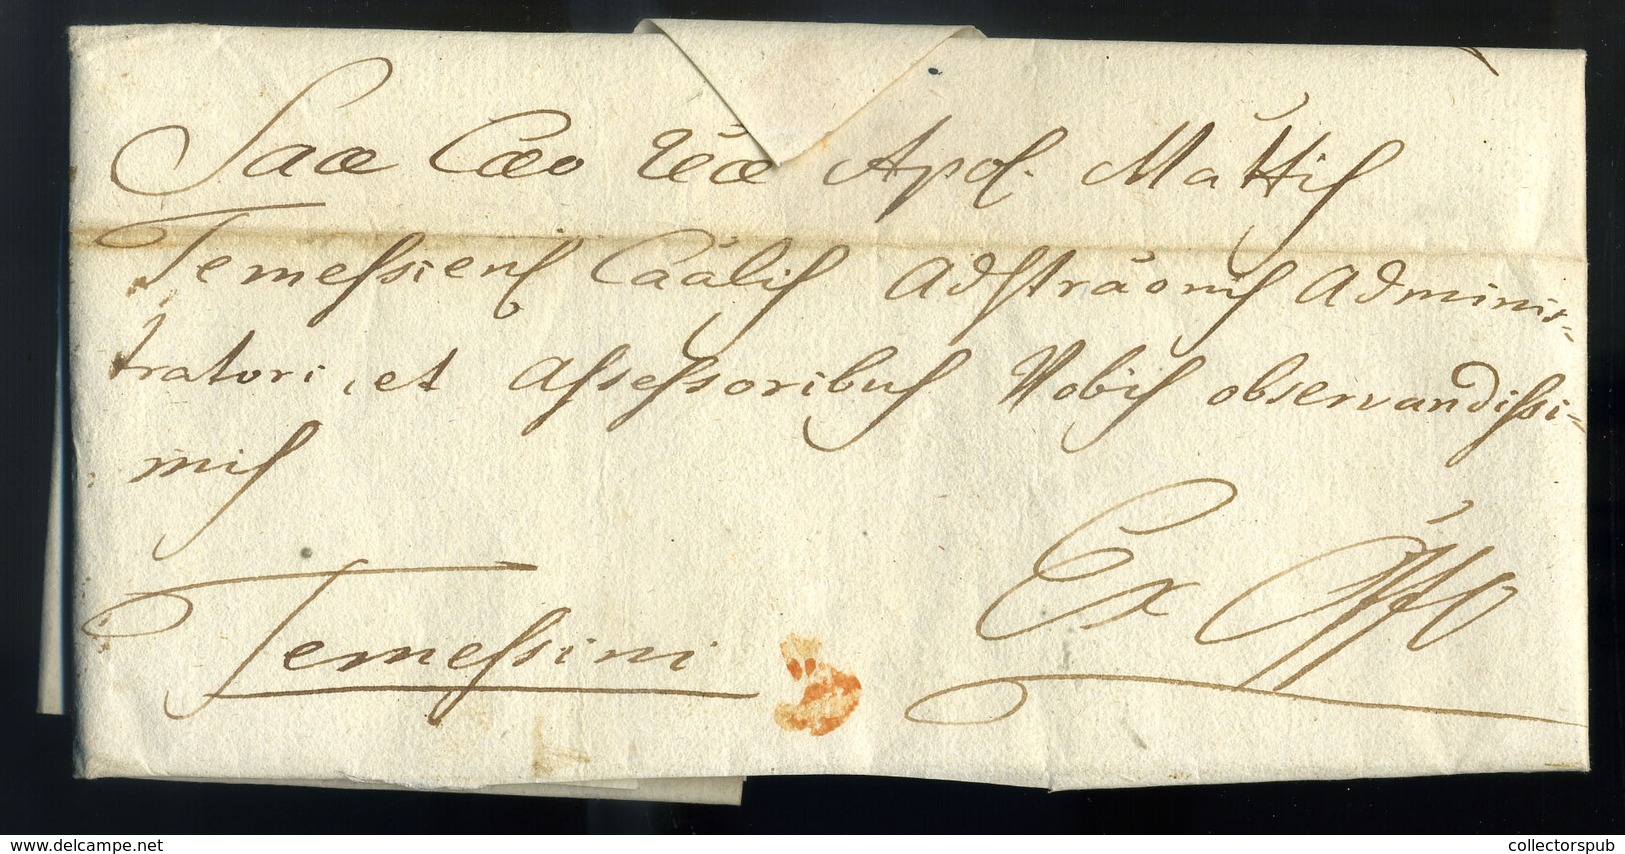 Sacæ Cæo Reæ Apol. Mattis
Temessiens Caalis Adstraonis Adminis-
tratori, et Assessoribus Nobis observandissi-
mis
Ex Offo
Temessini
collectorspub